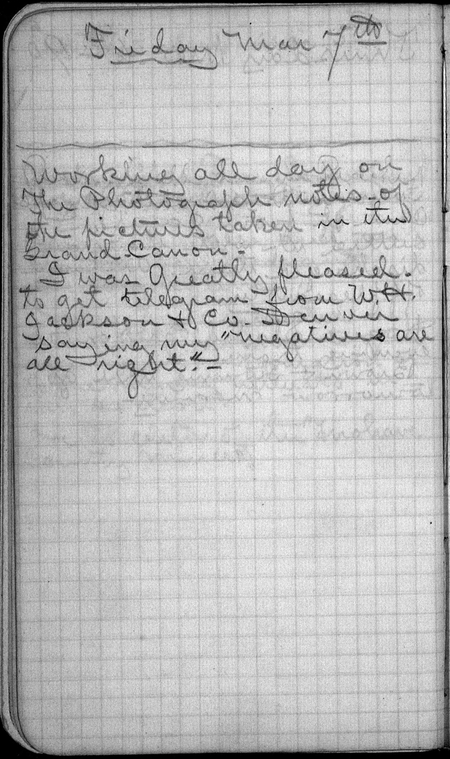 Friday Mar 7th
Working all day on
the Photograph notes of
the pictures taken in the
Grand Canon -
I was Greatly pleased.
to get telegram from W.H.
Jackson & Co. Denver
saying my "negatives are
all right." -